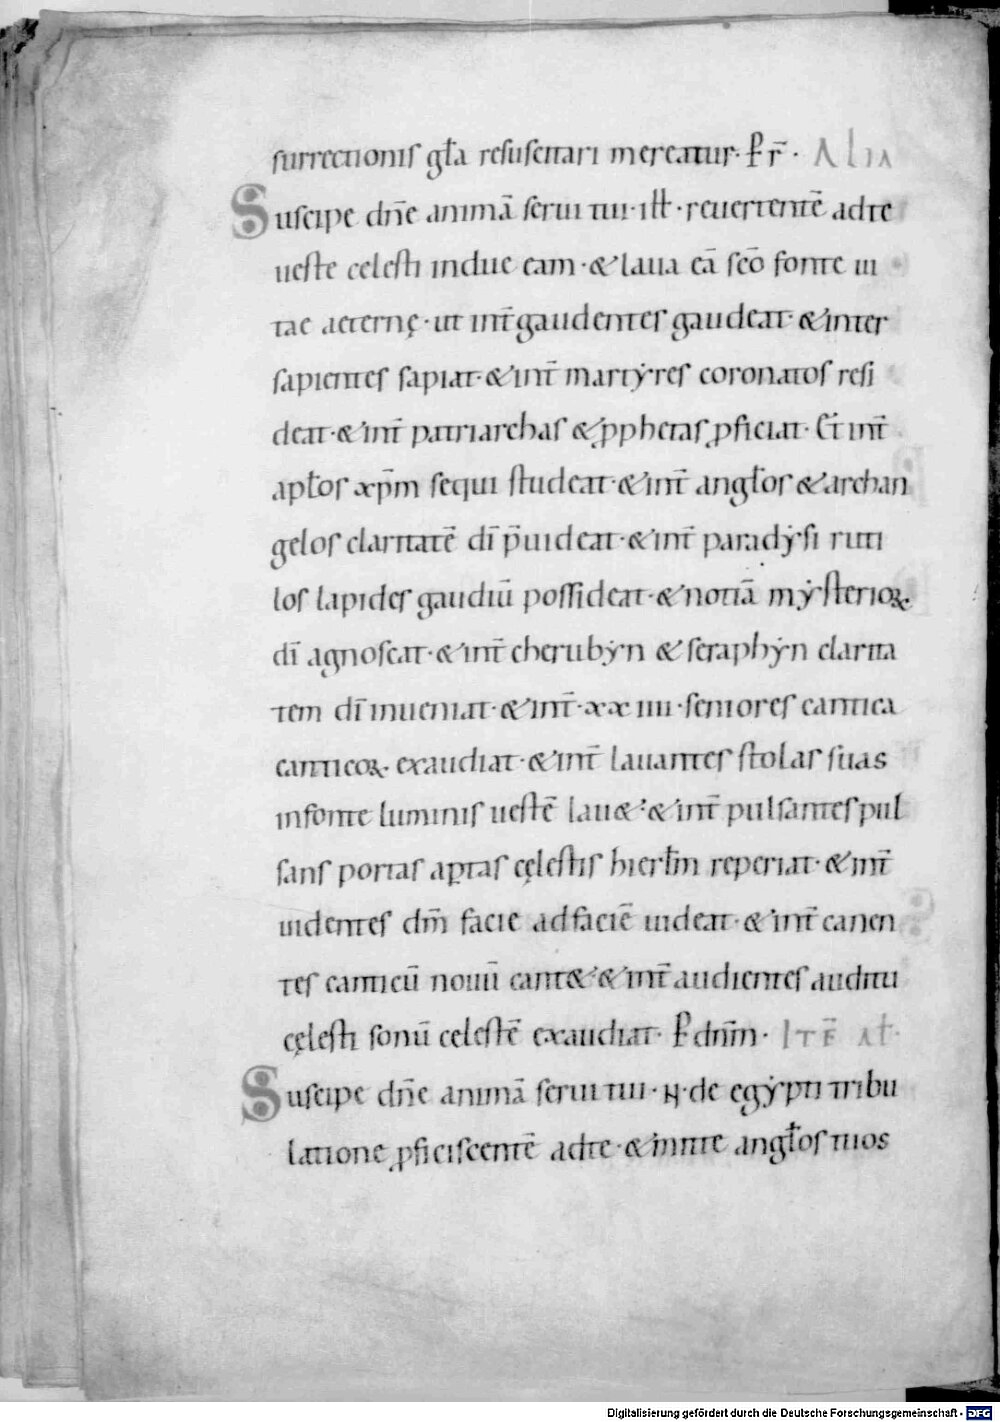 surrectionis gła resuscitari mereatur· P̱ r̄· ALIA
Suscipe dn̄e animā serui tui· ill̵ ·reuertentē adte
ueste celesti indue eam· & laua eā sc̄o fonte ui
tae aeternę· ut int̄ gaudentes gaudeat· & inter
sapientes sapiat· & int̄ martẏres coronatos resi
deat· & int̄ patriarchas & ꝓphetas ꝓficiat· Et int̄
apłos xp̄m sequi studeat· & int̄ angłos & archan
gelos claritatē dī p̄uideat· & int̄ paradẏsi ruti
los lapides gaudiū possideat· & notiā mẏsterioꝝ·
dī agnoscat· & int̄ cherubẏn & seraphẏn clarita
tem dī inueniat· & int̄· xx iiii ·seniores cantica
canticoꝝ· exaudiat· & int̄ lauantes stolas suas
infonte luminis uestē lau&· & int̄ pulsantes pul
sans portas aptas cęlestis hierłm reperiat· & int̄
uidentes dm̄ facie adfaciē uideat· & int̄ canen
tes canticū nouū cant&· & int̄ audientes auditu
cęlesti sonū celestē exaudiat· P̱ dnm̄· ITĒ Aƚ·
Suscipe dn̄e animā serui tui· N· de egẏpti tribu
latione ꝓficiscentē adte· & mitte angłos tuos
Digitalisierung gefördert durch die Deutsche Forschungsgemeinschaft - DFG